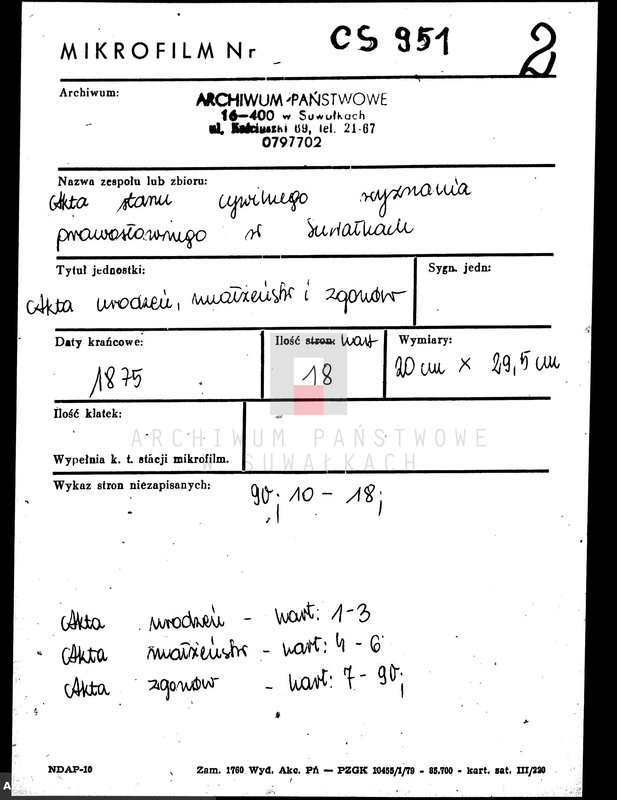 MIKROFILM Nr CS 951 2
Archiwum:
ARCHIWUM PAŃSTWOWE
16-400 w Suwałkach
ul. Kościuszki 69, tel. 21-67
0797702
Nazwa zespołu lub zbioru:
Akta stanu cywilnego wyznania
prawosławnego w Suwałkach
Tytuł jednostki:
Sygn. jedn:
Akta urodzeń, małżeństw i zgonów
Daty krańcowe:
Ilość stron: kart
Wymiary:
1875
18
20 cm × 29,5 cm
Ilość klatek:
ARCHIWUM PAŃSTWOWE
W SUWAŁKACH
Wypełnia k. t. stacji mikrofilm.
Wykaz stron niezapisanych:
9v; 10 - 18;
Akta urodzeń - kart: 1-3
Akta małżeństw - kart: 4 - 6
Akta zgonów - kart: 7 - 9v;
NDAP-10
Zam. 1760 Wyd. Akc. Pń — PZGK 10455/1/79 - 85.700 - kart. sat. III/220